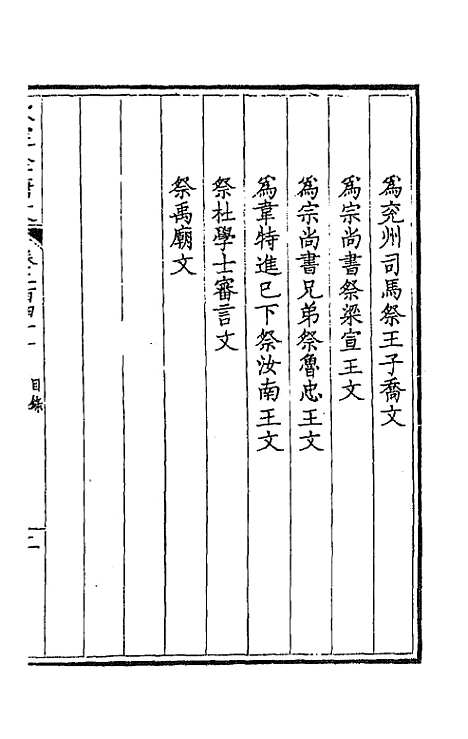 為兖州司馬祭王子喬文
為宗尚書祭梁宣王文
為宗尚書兄弟祭魯忠王文
為韋特進已下祭汝南王文
祭杜學士審言文
祭禹廟文
目錄
二